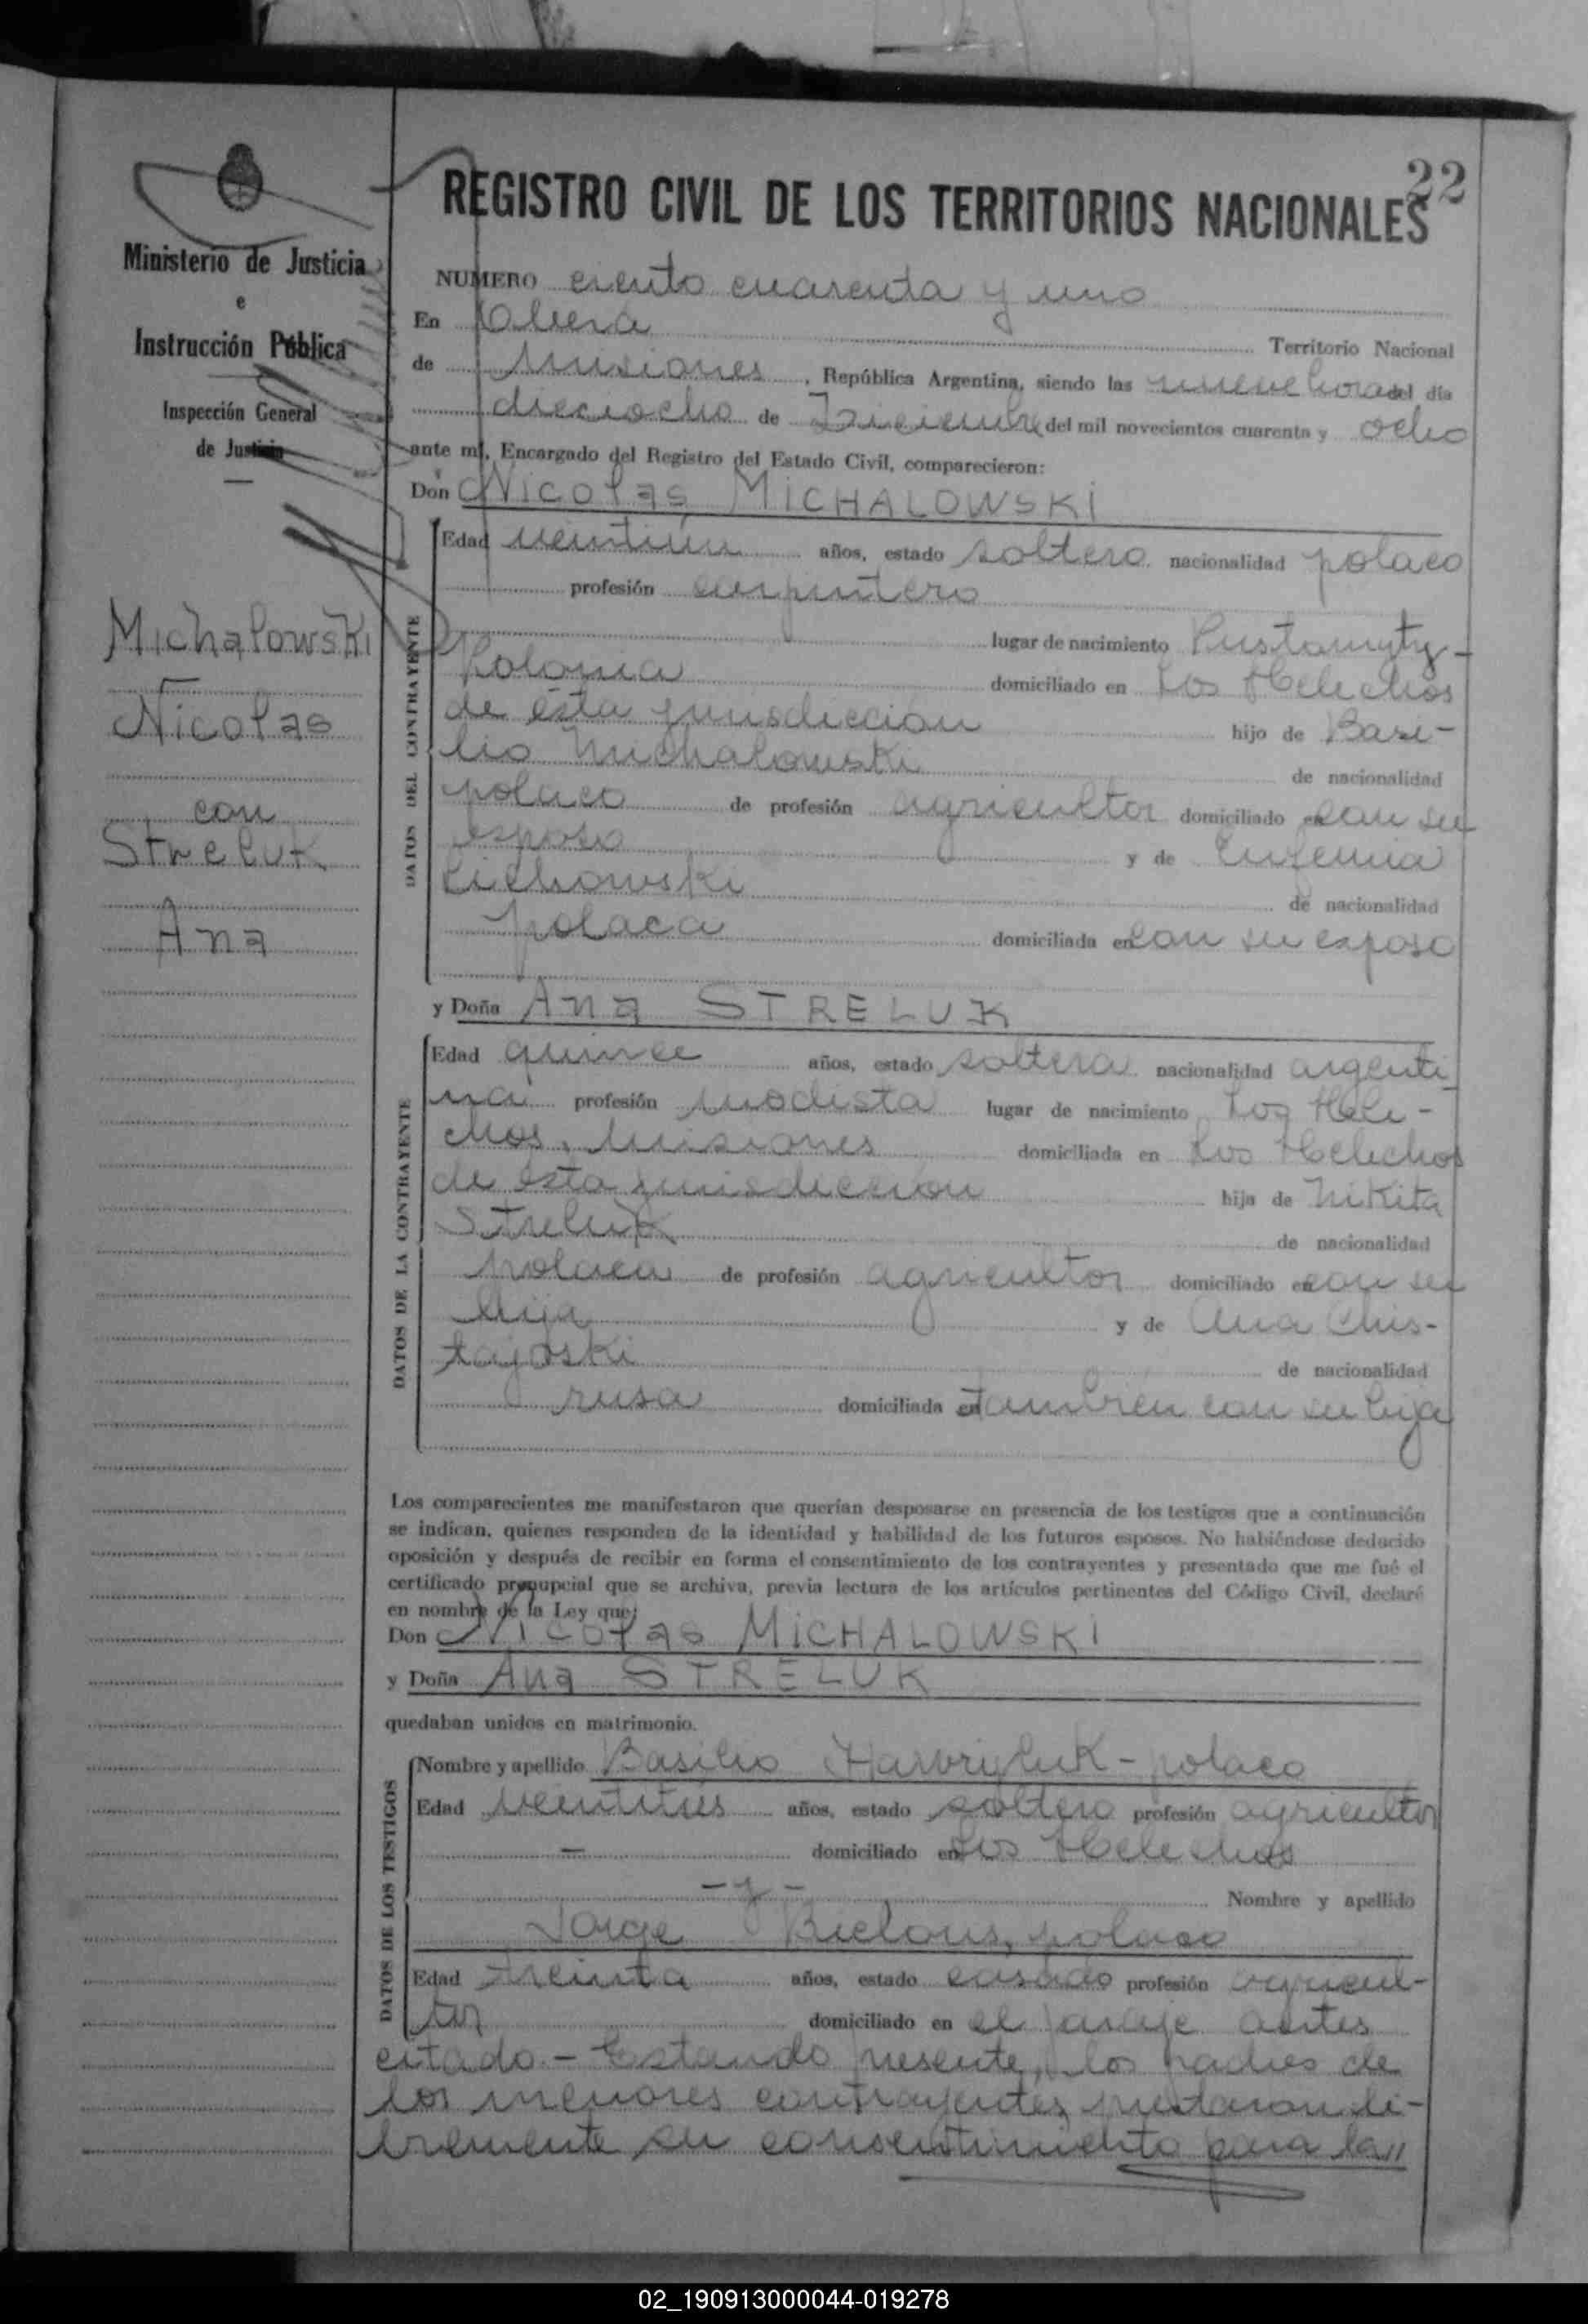 22
REGISTRO CIVIL DE LOS TERRITORIOS NACIONALES
Ministerio de Justicia
e
Instrucción Pública
Inspección General
de Justicia
Michalowski
Nicolas
con
Streluk
Ana
NUMERO ciento cuarenta y uno
En Oberá Territorio Nacional
de Misiones, República Argentina, siendo las nueve horas del día
dieciocho de Diciembre del mil novecientos cuarenta y ocho
ante mí, Encargado del Registro del Estado Civil, comparecieron:
Don Nicolas MICHALOWSKI
DATOS DEL CONTRAYENTE
Edad veintiún años, estado soltero nacionalidad polaco
profesión carpintero
lugar de nacimiento Pustomyty-
Polonia domiciliado en Los Helechos
de ésta jurisdicción hijo de Basi-
lio Michalowski de nacionalidad
polaco de profesión agricultor domiciliado en con su
esposa y de Eufemia
Cichowski de nacionalidad
polaca domiciliada en con su esposo
y Doña Ana STRELUK
DATOS DE LA CONTRAYENTE
Edad quince años, estado soltera nacionalidad argenti-
na profesión modista lugar de nacimiento Los Hele-
chos, Misiones domiciliada en Los Helechos
de ésta jurisdicción hija de Nikita
Streluk de nacionalidad
polaca de profesión agricultor domiciliado en con su
hija y de Ana Chis-
tajoski de nacionalidad
rusa domiciliada en también con su hija
Los comparecientes me manifestaron que querían desposarse en presencia de los testigos que a continuación
se indican, quienes responden de la identidad y habilidad de los futuros esposos. No habiéndose deducido
oposición y después de recibir en forma el consentimiento de los contrayentes y presentado que me fué el
certificado prenupcial que se archiva, previa lectura de los artículos pertinentes del Código Civil, declaré
en nombre de la Ley que:
Don Nicolas MICHALOWSKI
y Doña Ana STRELUK
quedaban unidos en matrimonio.
DATOS DE LOS TESTIGOS
Nombre y apellido Basilio Hawryluk - polaco
Edad años, estado soltero profesión agricultor
— domiciliado en Los Helechos
- y - Nombre y apellido
Jorge Bielous, polaco
Edad treinta años, estado casado profesión agricul-
tor domiciliado en el paraje antes
citado.- Estando presente, los padres de
los menores contrayentes, prestaron li-
bremente su consentimiento para la //
02_190913000044-019278